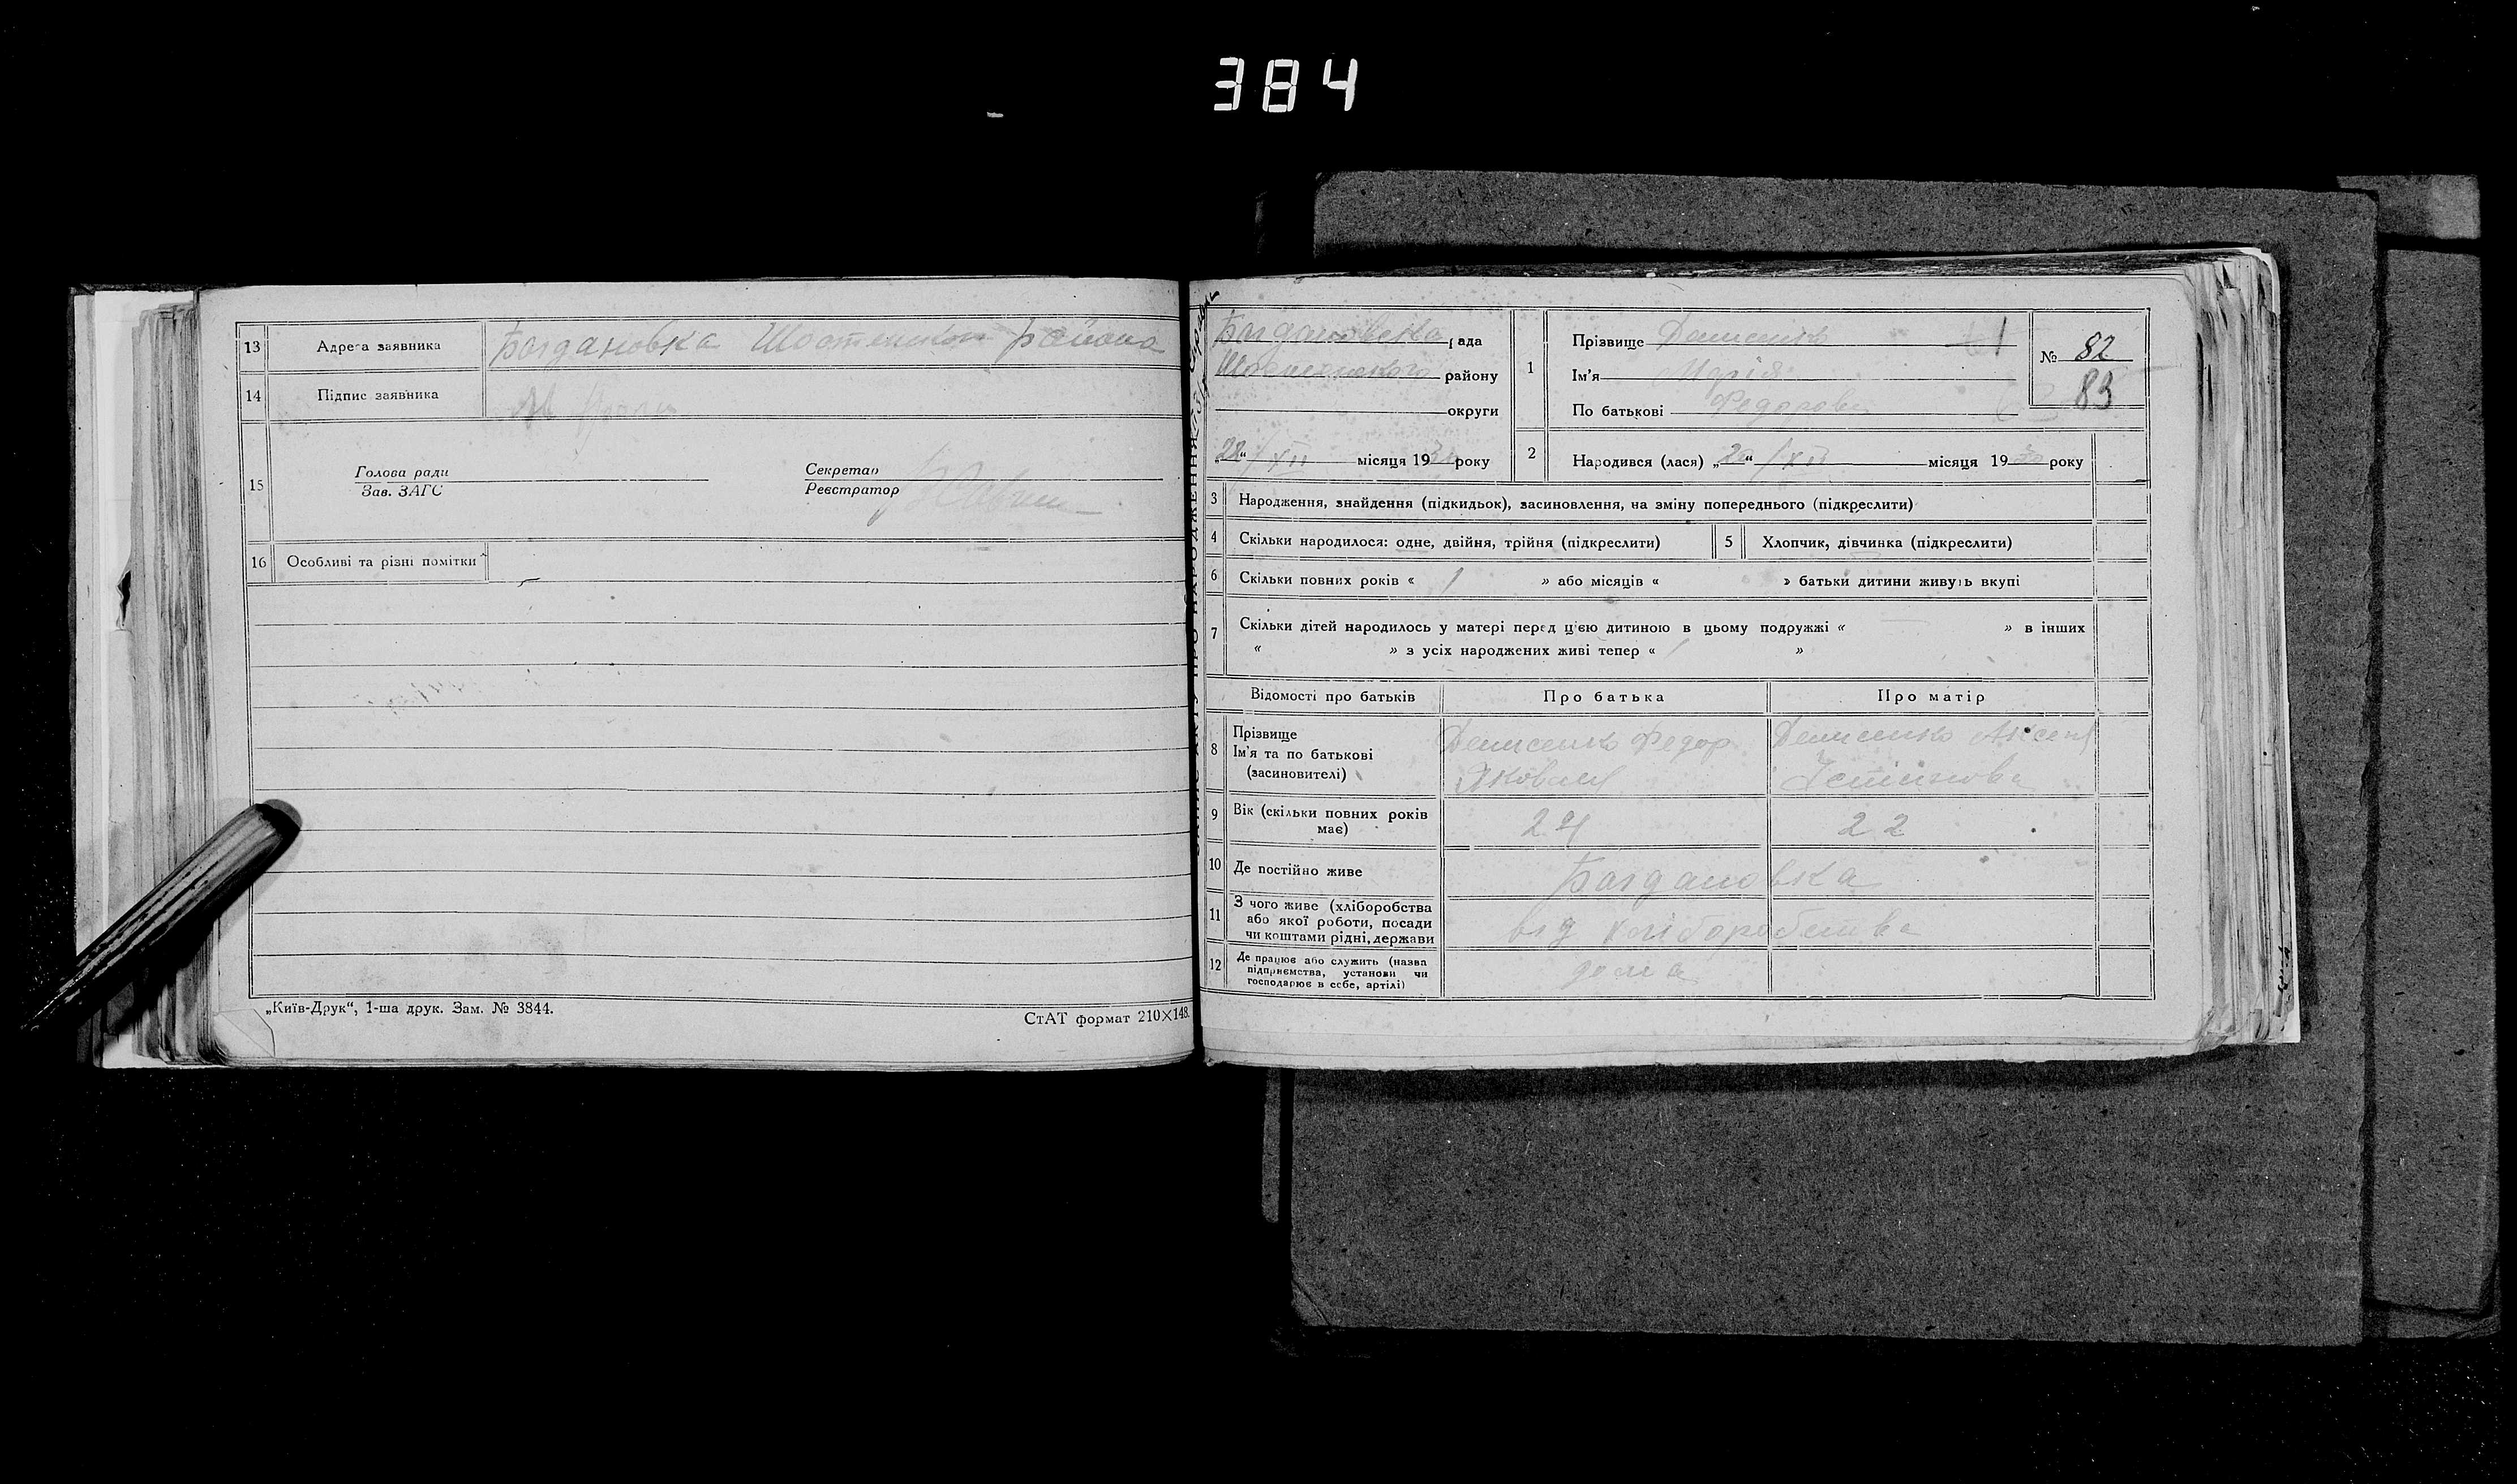 384
13 Адреса заявника Богдановка Шостенског района
14 Підпис заявника
15 Голова ради
Зав. ЗАГС
Секретар
Реєстратор
16 Особливі та різні помітки
„Київ-Друк“, 1-ша друк. Зам. № 3844.
СтАТ формат 210×148.
Богдановська рада
Шостенского району
округи
„22“ XII місяця 1930 року
1 Прізвище Денисенко
Ім'я Марія
По батькові Федоровн
№ 82
83
2 Народився (лася) „2 “ / XII місяця 1930 року
3 Народження, знайдення (підкидьок), засиновлення, на зміну попереднього (підкреслити)
4 Скільки народилося: одне, двійня, трійня (підкреслити) 5 Хлопчик, дівчинка (підкреслити)
6 Скільки повних років « 1 » або місяців « » батьки дитини живуть вкупі
7 Скільки дітей народилось у матері перед цією дитиною в цьому подружжі « — » в інших
« » з усіх народжених живі тепер « »
Відомості про батьків Про батька Про матір
8 Прізвище
Ім'я та по батькові
(засиновителі)
Денисенко Федор
Яковлев
Денисенко Аксеня
9 Вік (скільки повних років
має)
24 22
10 Де постійно живе Богдановка
11 З чого живе (хліборобства
або якої роботи, посади
чи коштами рідні, держави
від хліборобства
12 Де працює або служить (назва
підприємства, установи чи
господарює в себе, артілі)
дома